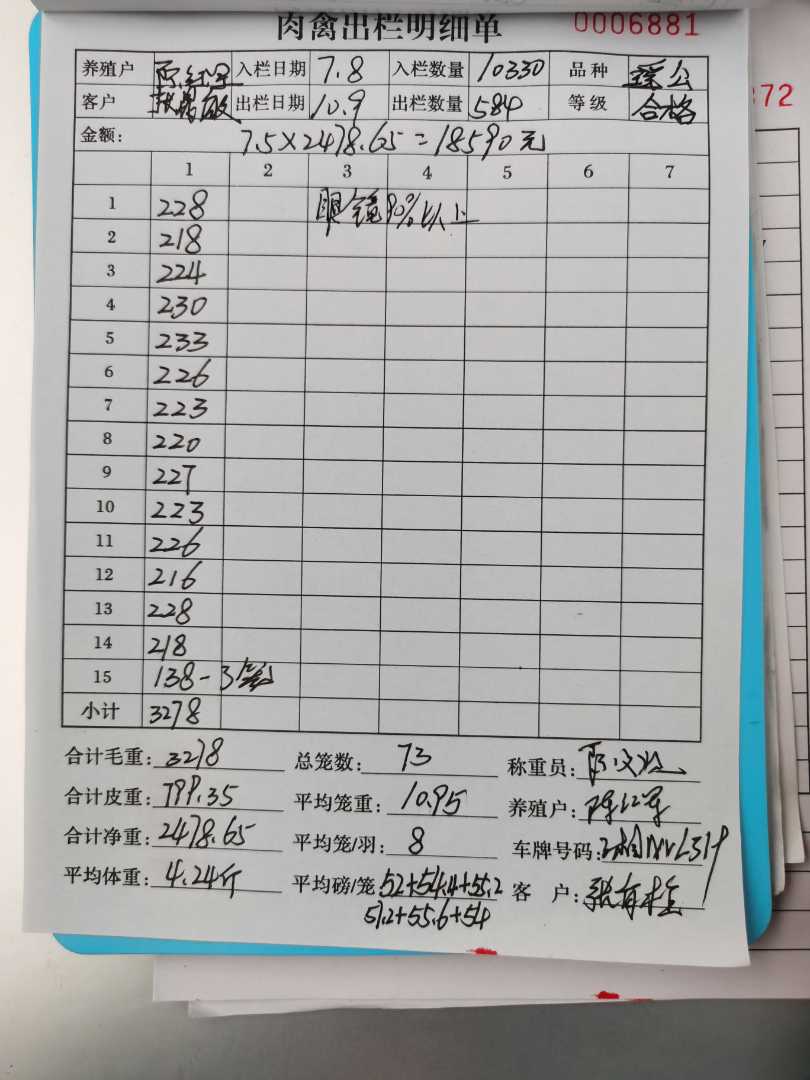 肉禽出栏明细单 0006881
养殖户 入栏日期 7.8 入栏数量 10330 品种 瑶公
客户 出栏日期 10.9 出栏数量 584 等级 合格
金额: 7.5×2478.65=18590元
1 2 3 4 5 6 7
1 228 眼镜90%以上
2 218
3 224
4 230
5 233
6 226
7 223
8 220
9 227
10 223
11 226
12 216
13 228
14 218
15 138-3
小计 3278
合计毛重: 3278 总笼数: 73 称重员:
合计皮重: 799.35 平均笼重: 10.95 养殖户:
合计净重: 2478.65 平均笼/羽: 8 车牌号码:
平均体重: 4.24斤 平均磅/笼: 52+54.4+55.2 客 户:
51.2+55.6+54
72